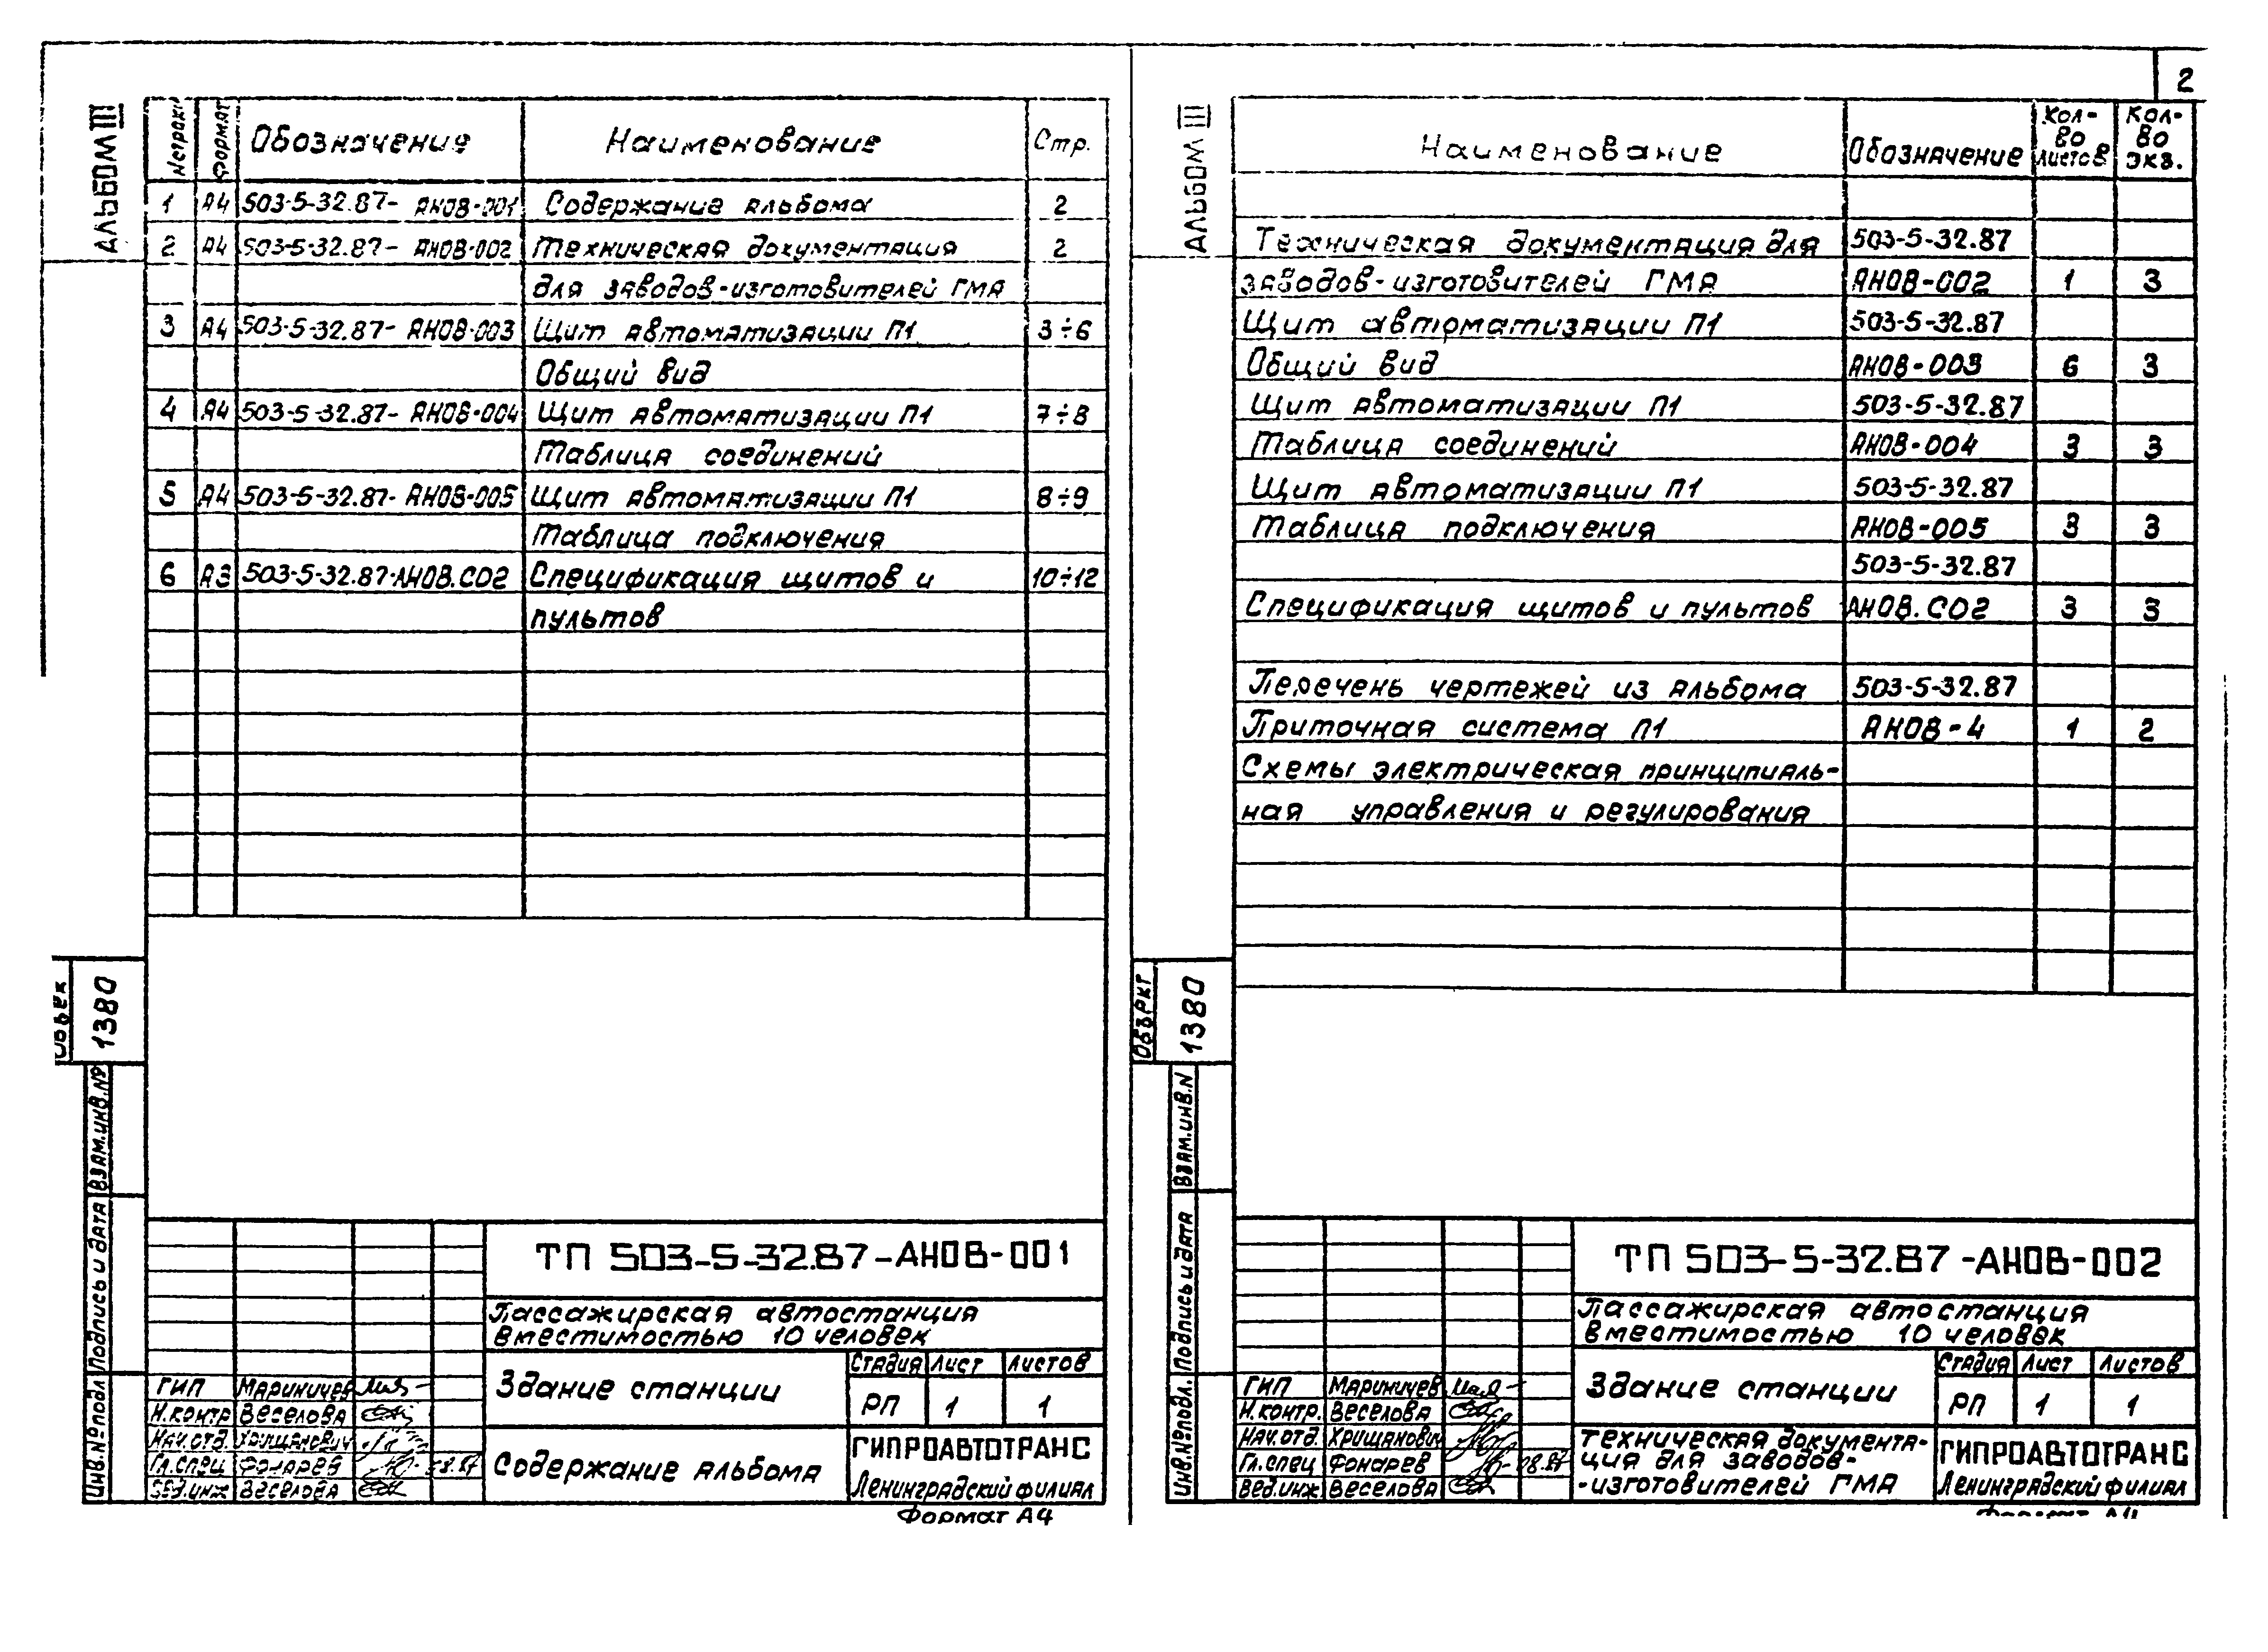 2
АЛЬБОМ III
№строки Формат Обозначение Наименование Стр.
1 А4 503-5-32.87- АНОВ-001 Содержание альбома 2
2 А4 503-5-32.87- АНОВ-002 Техническая документация 2
для заводов-изготовителей ГМА
3 А4 503-5-32.87- АНОВ-003 Щит автоматизации П1 3÷6
Общий вид
4 А4 503-5-32.87- АНОВ-004 Щит автоматизации П1 7÷8
Таблица соединений
5 А4 503-5-32.87- АНОВ-005 Щит автоматизации П1 8÷9
Таблица подключения
6 А3 503-5-32.87-АНОВ.СО2 Спецификация щитов и 10÷12
пультов
Объек
1380
Взам.инв.№
Подпись и дата
Инв.№подл
ТП 503-5-32.87-АНОВ-001
Пассажирская автостанция
вместимостью 10 человек
Здание станции
Стадия Лист Листов
РП 1 1
ГИП Мариничев
Н.контр Веселова
Нач.отд. Хрищанович
Гл.спец Фонарев 08.87
Вед.инж Веселова
Содержание альбома
ГИПРОАВТОТРАНС
Ленинградский филиал
Формат А4
АЛЬБОМ III
Наименование Обозначение Кол-во листов Кол-во экз.
Техническая документация для 503-5-32.87
заводов-изготовителей ГМА АНОВ-002 1 3
Щит автоматизации П1 503-5-32.87
Общий вид АНОВ-003 6 3
Щит автоматизации П1 503-5-32.87
Таблица соединений АНОВ-004 3 3
Щит автоматизации П1 503-5-32.87
Таблица подключения АНОВ-005 3 3
503-5-32.87
Спецификация щитов и пультов АНОВ.СО2 3 3
Перечень чертежей из альбома 503-5-32.87
Приточная система П1 АНОВ-4 1 2
Схемы электрическая принципиаль-
ная управления и регулирования
Объект
1380
Взам.инв.N
Подпись и дата
Инв.№подл.
ТП 503-5-32.87-АНОВ-002
Пассажирская автостанция
вместимостью 10 человек
Здание станции
Стадия Лист Листов
РП 1 1
ГИП Мариничев
Н.контр. Веселова
Нач.отд. Хрищанович
Гл.спец Фонарев 08.87
Вед.инж Веселова
Техническая документа-
ция для заводов-
-изготовителей ГМА
ГИПРОАВТОТРАНС
Ленинградский филиал
Формат А4